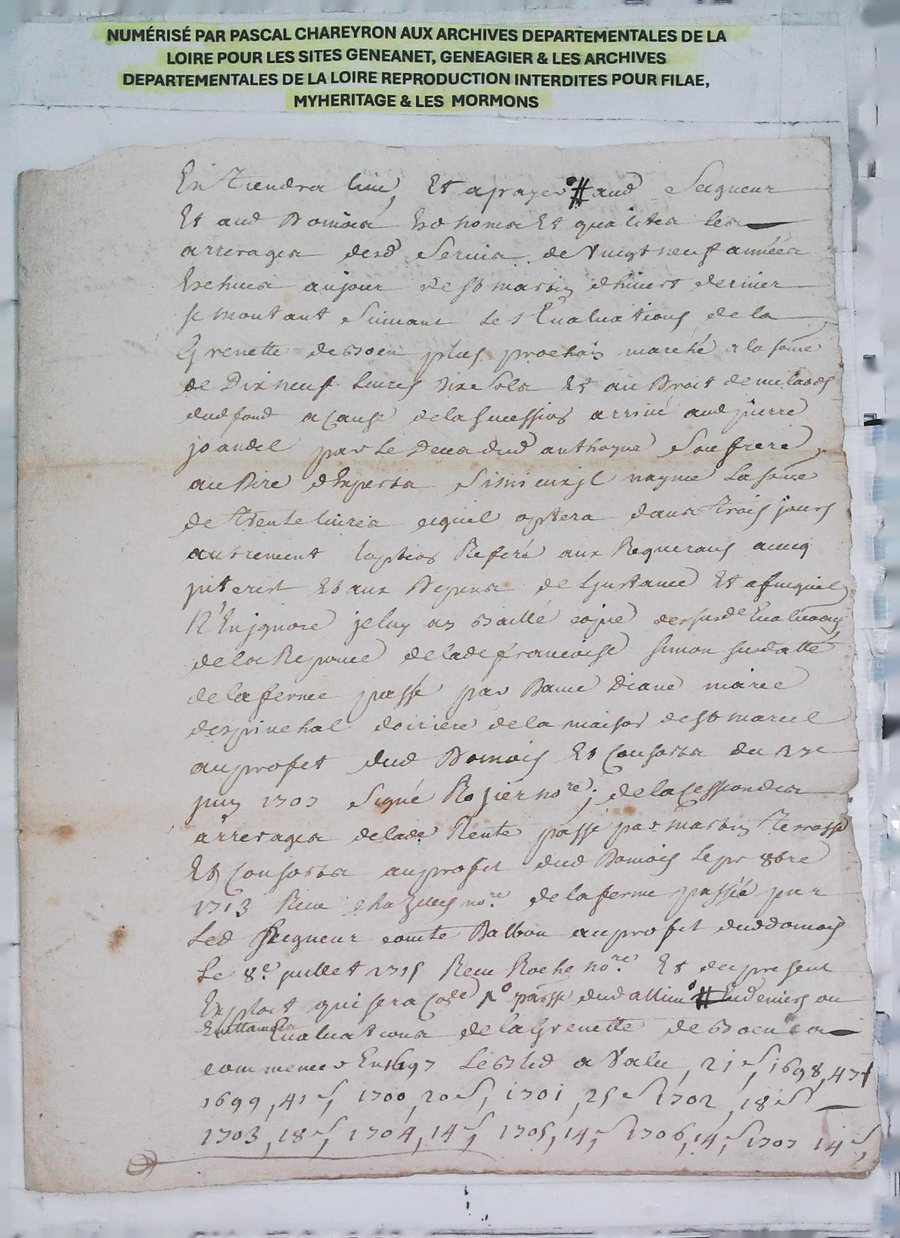 NUMÉRISÉ PAR PASCAL CHAREYRON AUX ARCHIVES DEPARTEMENTALES DE LA
LOIRE POUR LES SITES GENEANET, GENEAGIER & LES ARCHIVES
DEPARTEMENTALES DE LA LOIRE REPRODUCTION INTERDITES POUR FILAE,
MYHERITAGE & LES MORMONS
En tiendra lieu, Et a payer aud Seigneur
Et aud Domois Es noms Et qualites les
arrerages desd Servis de Vingt neuf années
Escheues au jour de st martin dhivert dernier
se montant Suivant les Evaluations de la
Grenette de Boen plus prochain marché a la some
de Dix neuf livres six Sols Et au Droit de milaods
dud fond a cause de la sucession arrivé aud pierre
joandel par le Deces dud anthoyne Son frere
au Dire dExperts Si mieux jl nayme la some
de trente livres cequil optera dans trois jours
autrement loption Referé aux Requerans avecq
jnterest Et aux Depens de Linstance Et afin quil
N'En jgnore je luy ay Baillé copie
de la Reponce de lade francoise Simon
de la ferme passé par Dame Diane marie
despinchal doiriere de la maison de st marcel
au profit dud Domois Et Consorts du
juin 1707 Signé Rozier nore, de la cession des
arrerages de lade Rente passé par martin terrasse
Et Consorts au profit dud Domois le pr 8bre
1713 Receu nore de la ferme passée par
Led Seigneur comte Dalbon au profit dud domois
Le 8e juillet 1715 Receu Roche nore Et du present
Exploit qui sera
Evaluations de la Grenette de Boen a
commencer En 1697 Le Bled a Valu, 21 s, 1698, 47 s
1699, 41 s, 1700, 20 s, 1701, 25 s 1702, 18 s
1703, 18 s, 1704, 14 s, 1705, 14, s 1706, 14, s 1707 14 s,